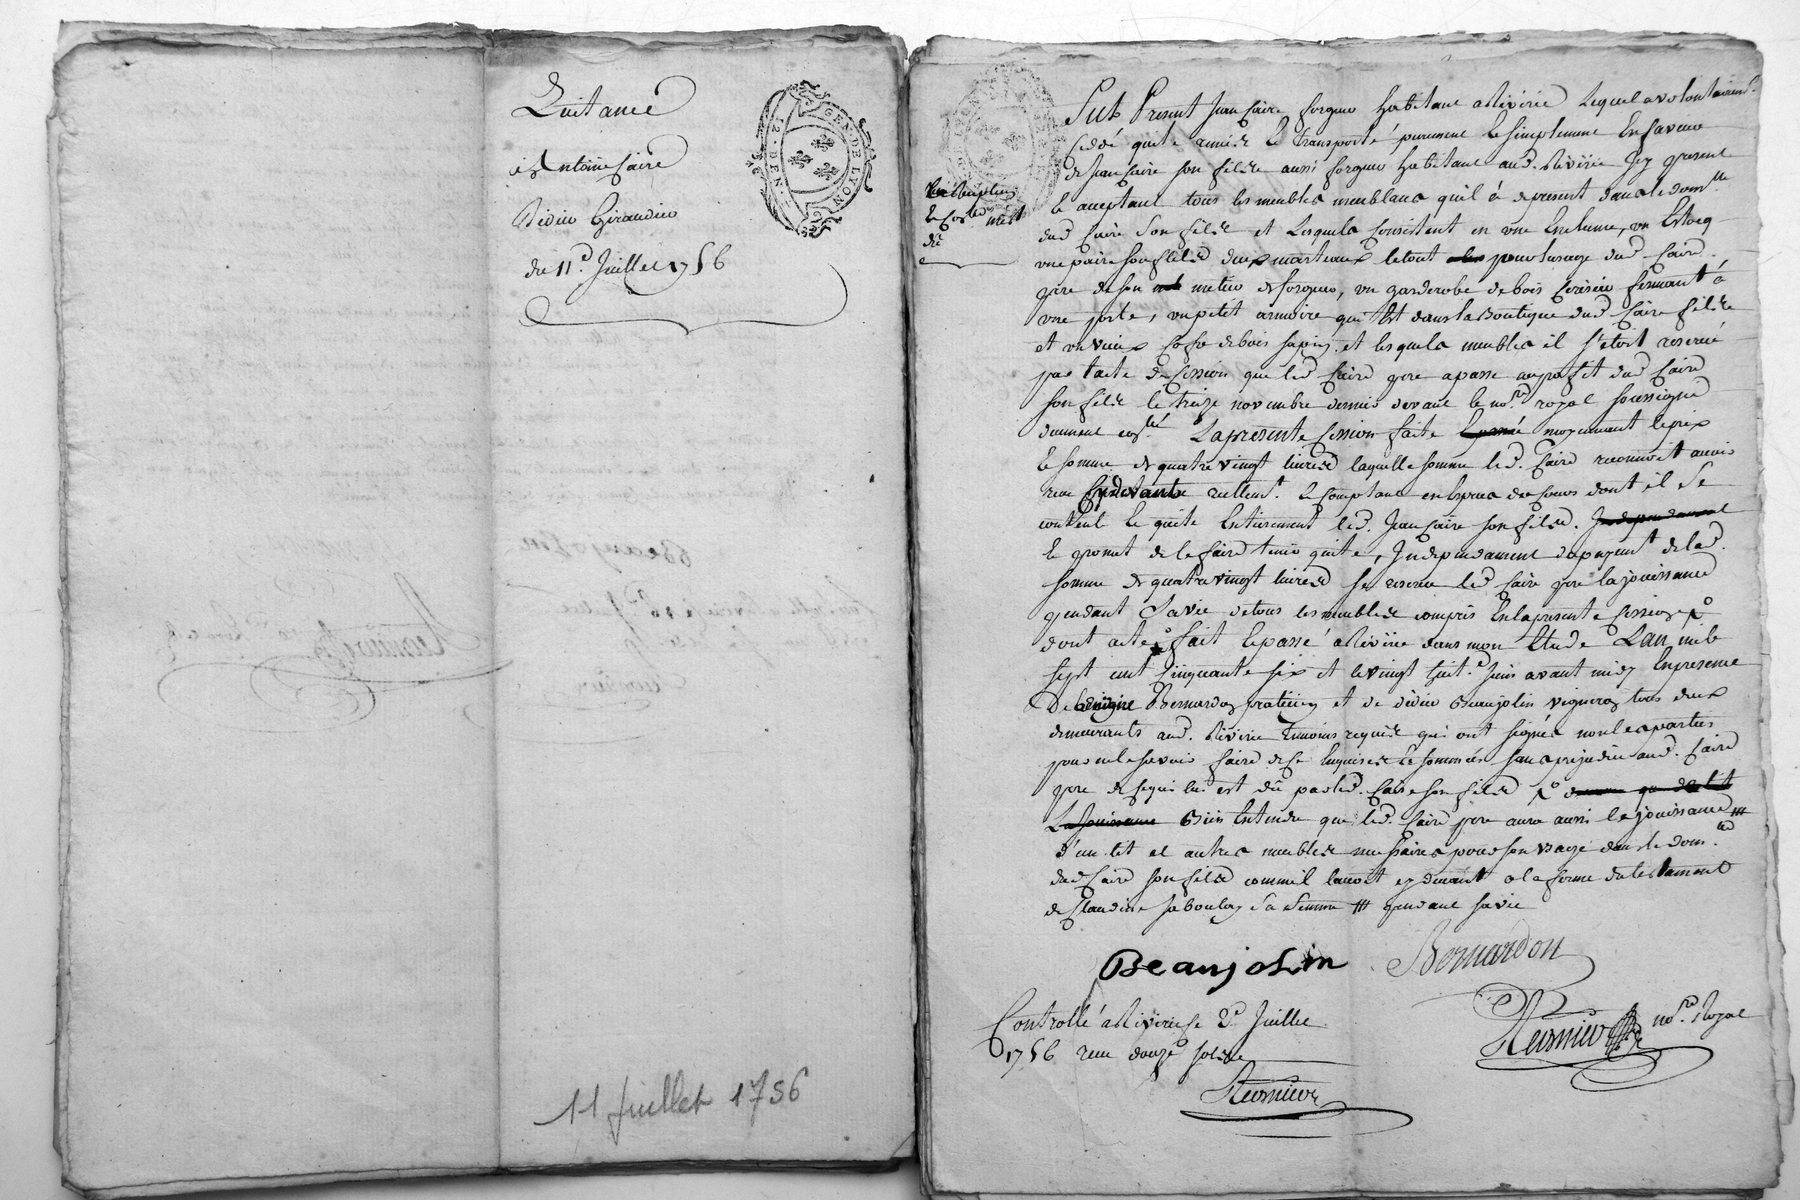 Quitance
Antoine Caire
Didier Giraudier
du 11e. Juillet 1756
GEN. DE LYON
12. DEN
11 juillet 1756
Fut Present Jean Caire forgeur habitant a Riverie Lequel a volontairemt.
cedé quité remis et transporté purement et simplement En faveur
de Jean Caire son fils aussi forgeur habitant aud. Riverie Icy present
et acceptant tous les meubles meublans qu'il à de present dans le domlle
dud Caire Son fils et Lesquels Consistent en une Enclume, un
une paire soufflets deux marteaux le tout pour lusage dud. Caire
pere de son metier de forgeur, un garderobe de bois Cerisier fermant à
une porte, un petit armoire qui Est dans la Boutique dud Caire fils
et un vieux Cofre de bois sapin, et lesquels meubles il s'étoit reservé
par l'acte de Cession que led Caire pere a passé au profit dud Caire
son fils le treize novembre dernier devant le nore. royal soussigné
duement conlé. La presente Cession faite moyennant le prix
et somme de quatre vingt livres laquelle somme led. Caire reconnoit avoir
reçu Cydevant reellemt. et Comptant en Especes de Cours dont il Se
content et quite Entierement led. Jean Caire son fils. Independament
et promet de le faire tenir quite, Independament du payemt. de lad.
somme de quatre vingt livres se reserve led Caire pere la jouissance
pendant Sa vie de tous les meubles compris En la presente Cession
dont acte fait et passé à Riverie dans mon Etude Lan mil
sept cent cinquante six et le vingt huite. juin avant midy En presence
de benigne Bernardon praticien et de didier Beaujolin vigneron tous deux
demeurants aud. Riverie temoins requis qui ont signés non les parties
pour ne le savoir faire de ce Enquises et sommées sans prejudice aud. Caire
pere de ce qui lui est dû par led. Caire son fils
La jouissance Bien Entendu que led. Caire pere aura aussi la jouissance
d'un lit et autres meubles necessaires pour son usage dans le domlle
dud Caire son fils comme il l'avoit cy devant a la forme du testament
de Claudine Jaboulay Sa femme pendant sa vie
Beaujolin Bernardon
nore. Royal
Controllé a Riverie le 2e Juillet
1756 reçu douze sols